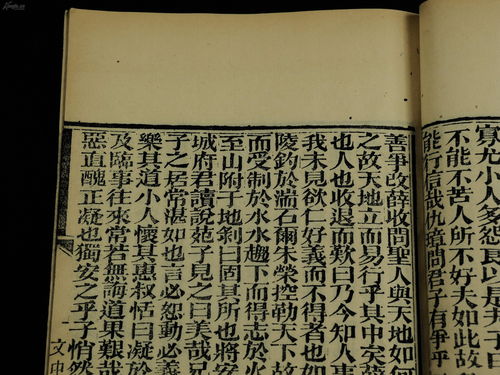 寡尤小人多怨良以是夫
不能不苦人所不好夫如此故
能行信哉仇璋問君子有爭乎
善爭改薛收問聖人與天地如何
之故天地立而易行乎其中矣薛
也人也收退而歎曰乃今知人事
我未見欲仁好義而不得者也如
陵釣於湍石爾朱榮控勒天下故
而受制於水水趨下而得志於火
至山附于地剝曰固其所也將安
城府君讀說苑子見之曰美哉兄
子之居常湛如也言必恕動必義
樂其道小人懷其惠叔恬曰凝於
及臨事往來常若無誨道果艱哉
惡直醜正凝也獨安之乎子悄然
文中